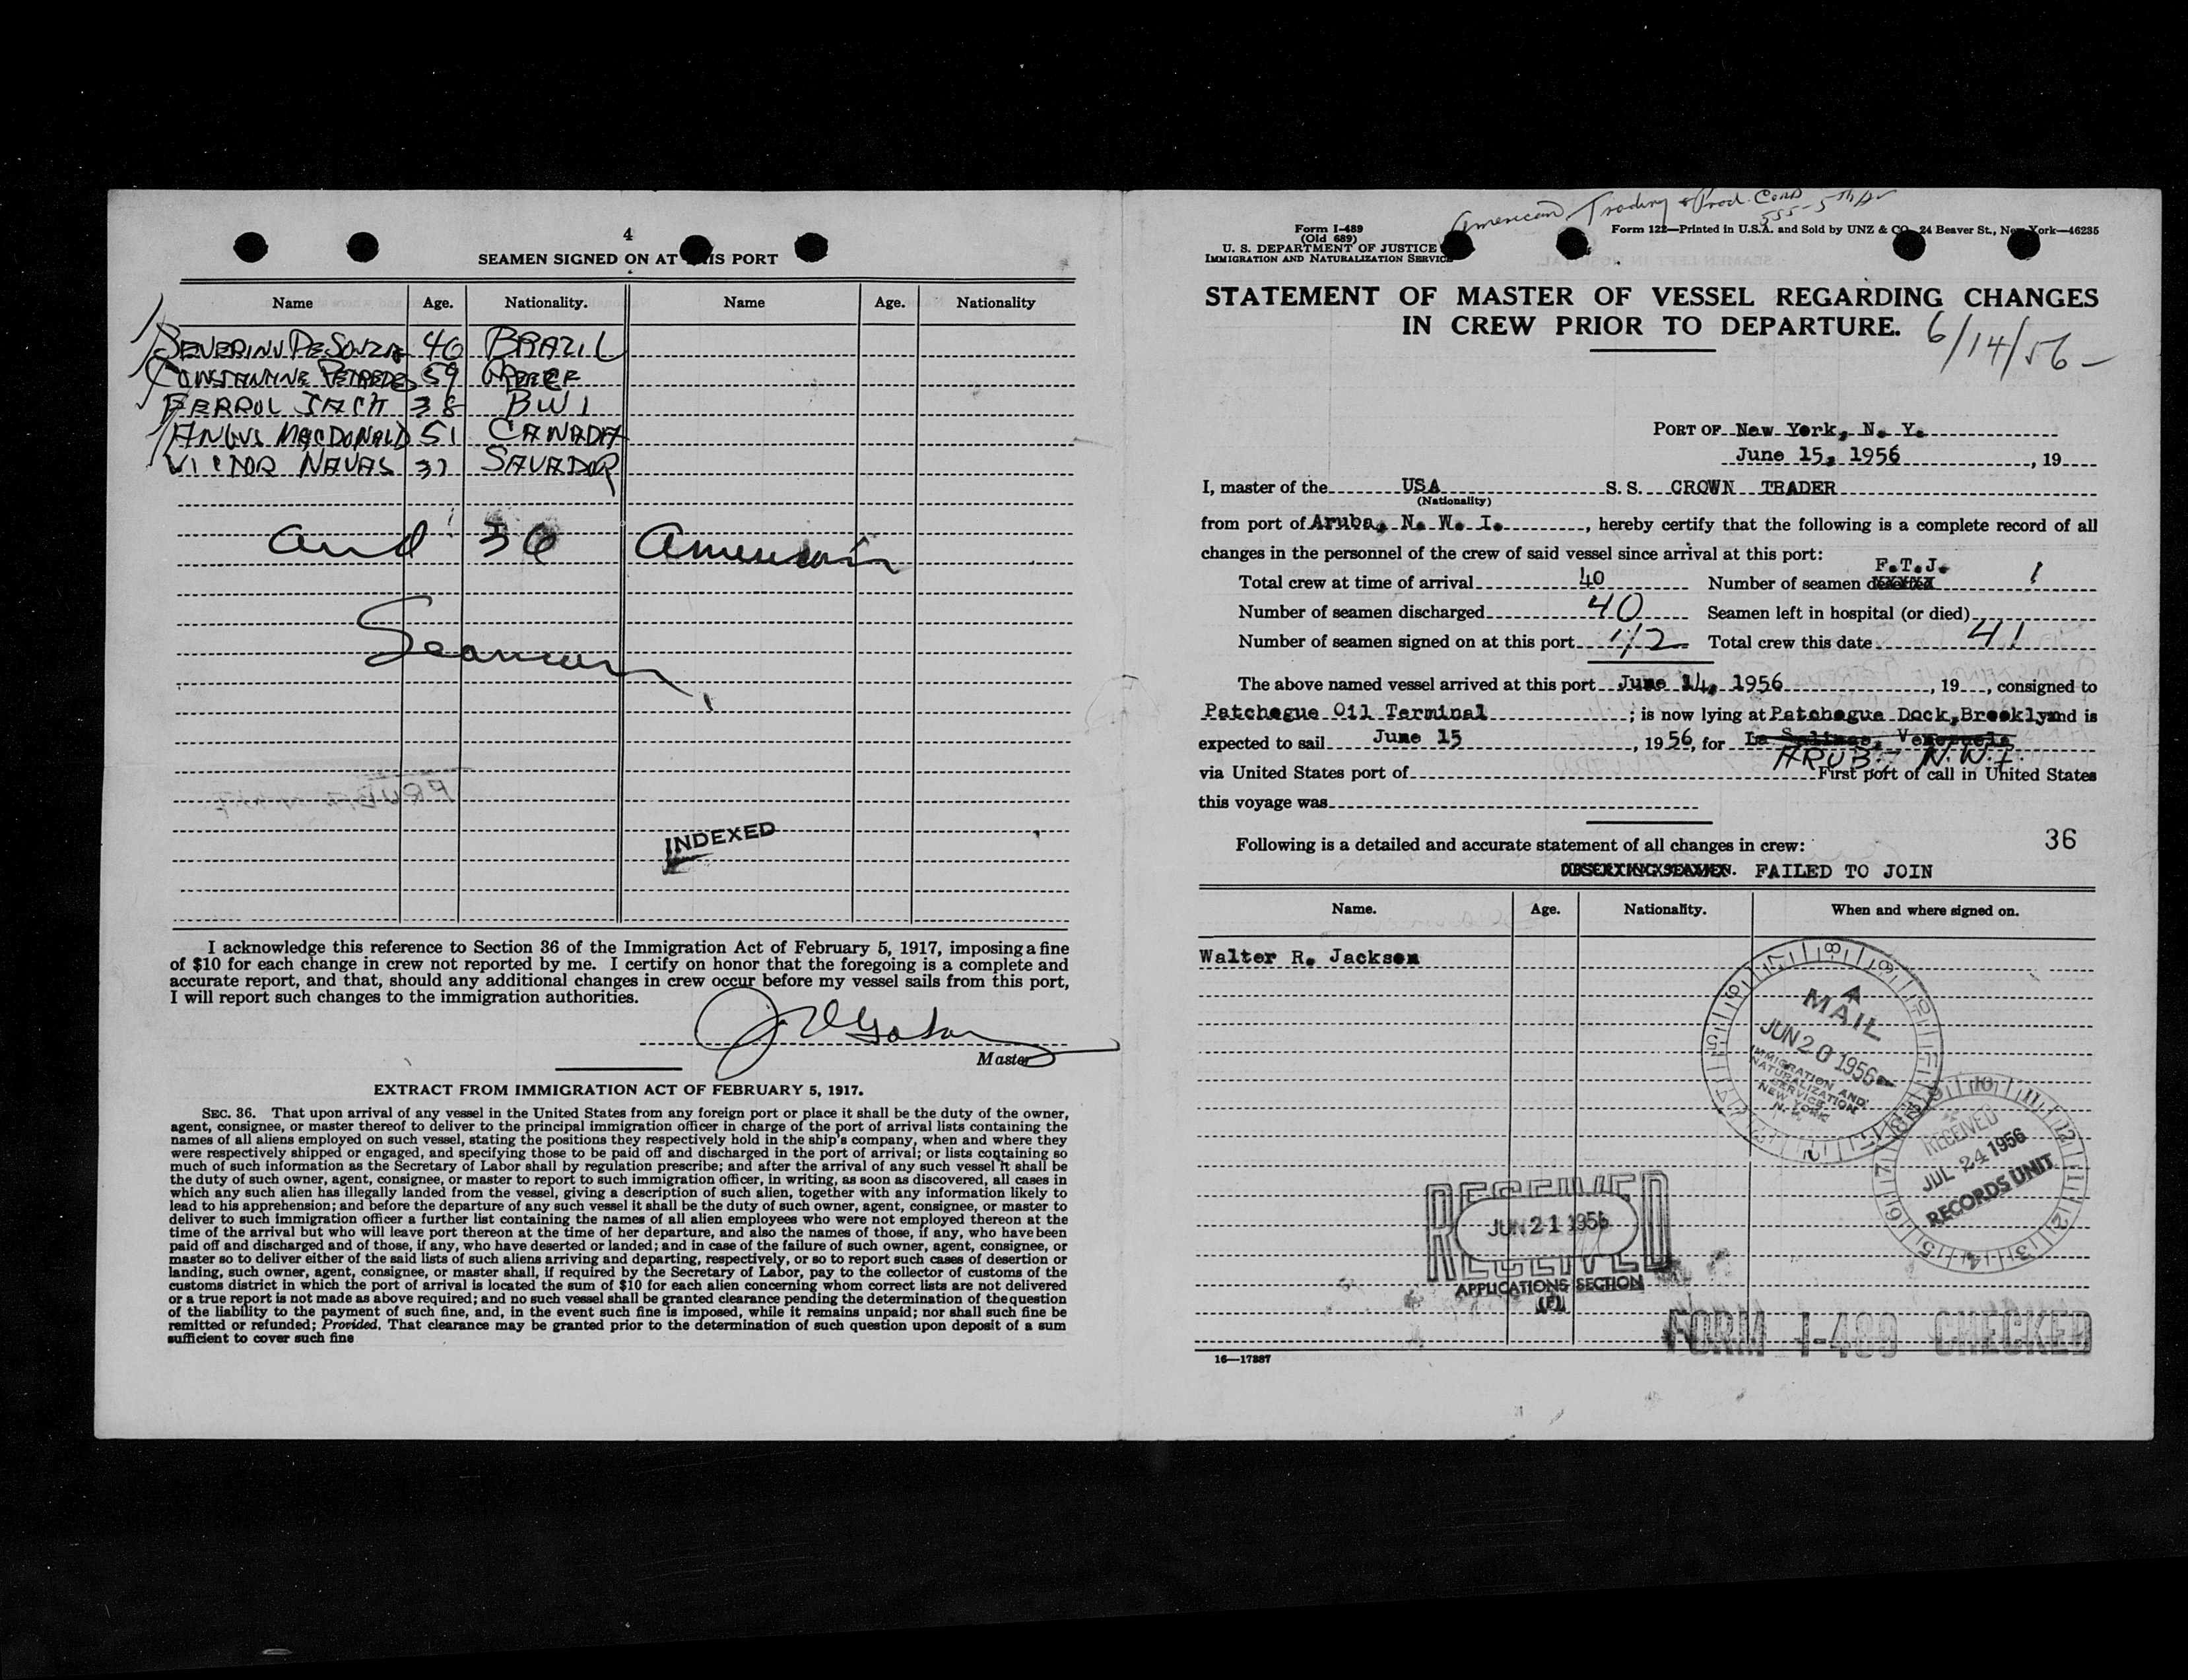 4
SEAMEN SIGNED ON AT THIS PORT
Name Age. Nationality. Name Age. Nationality
SEVERINO DE SOUZA 46 BRAZIL
CONSTANTINE PETREDES 59 GREECE
FERROL JACK 38 BWI
ANGUS MACDONALD 51 CANADA
VICTOR NAVAS 37 SAVADOR
and 36 American
Seamen
INDEXED
I acknowledge this reference to Section 36 of the Immigration Act of February 5, 1917, imposing a fine
of $10 for each change in crew not reported by me. I certify on honor that the foregoing is a complete and
accurate report, and that, should any additional changes in crew occur before my vessel sails from this port,
I will report such changes to the immigration authorities.
Master
EXTRACT FROM IMMIGRATION ACT OF FEBRUARY 5, 1917.
SEC. 36. That upon arrival of any vessel in the United States from any foreign port or place it shall be the duty of the owner,
agent, consignee, or master thereof to deliver to the principal immigration officer in charge of the port of arrival lists containing the
names of all aliens employed on such vessel, stating the positions they respectively hold in the ship's company, when and where they
were respectively shipped or engaged, and specifying those to be paid off and discharged in the port of arrival; or lists containing so
much of such information as the Secretary of Labor shall by regulation prescribe; and after the arrival of any such vessel it shall be
the duty of such owner, agent, consignee, or master to report to such immigration officer, in writing, as soon as discovered, all cases in
which any such alien has illegally landed from the vessel, giving a description of such alien, together with any information likely to
lead to his apprehension; and before the departure of any such vessel it shall be the duty of such owner, agent, consignee, or master to
deliver to such immigration officer a further list containing the names of all alien employees who were not employed thereon at the
time of the arrival but who will leave port thereon at the time of her departure, and also the names of those, if any, who have been
paid off and discharged and of those, if any, who have deserted or landed; and in case of the failure of such owner, agent, consignee, or
master so to deliver either of the said lists of such aliens arriving and departing, respectively, or so to report such cases of desertion or
landing, such owner, agent, consignee, or master shall, if required by the Secretary of Labor, pay to the collector of customs of the
customs district in which the port of arrival is located the sum of $10 for each alien concerning whom correct lists are not delivered
or a true report is not made as above required; and no such vessel shall be granted clearance pending the determination of the question
of the liability to the payment of such fine, and, in the event such fine is imposed, while it remains unpaid; nor shall such fine be
remitted or refunded; Provided, That clearance may be granted prior to the determination of such question upon deposit of a sum
sufficient to cover such fine
American Trading & Prod. Corp
555-5th Av
Form I-489
(Old 689)
U. S. DEPARTMENT OF JUSTICE
IMMIGRATION AND NATURALIZATION SERVICE
Form 122—Printed in U.S.A. and Sold by UNZ & CO., 24 Beaver St., New York—46235
STATEMENT OF MASTER OF VESSEL REGARDING CHANGES
IN CREW PRIOR TO DEPARTURE.
6/14/56-
PORT OF New York, N. Y.
June 15, 1956, 19
I, master of the USA S.S. CROWN TRADER
(Nationality)
from port of Aruba, N. W. I., hereby certify that the following is a complete record of all
changes in the personnel of the crew of said vessel since arrival at this port:
F.T.J.
Total crew at time of arrival 40 Number of seamen deserted 1
Number of seamen discharged 40 Seamen left in hospital (or died)
Number of seamen signed on at this port 42 Total crew this date 41
The above named vessel arrived at this port June 14, 1956, 19, consigned to
Patchogue Oil Terminal; is now lying at Patchogue Dock, Brooklyn and is
expected to sail June 15, 1956, for La Salinas, Venezuela
ARUBA N.W.I.
via United States port of First port of call in United States
this voyage was
Following is a detailed and accurate statement of all changes in crew: 36
DESERTING SEAMEN. FAILED TO JOIN
Name. Age. Nationality. When and where signed on.
Walter R. Jackson
MAIL
JUN 20 1956
IMMIGRATION AND
NATURALIZATION
SERVICE
NEW YORK
N. Y.
RECEIVED
JUL 24 1956
RECORDS UNIT
RECEIVED
JUN 21 1956
RECEIVED
APPLICATIONS SECTION
FORM I-489 CHECKED
16—17887